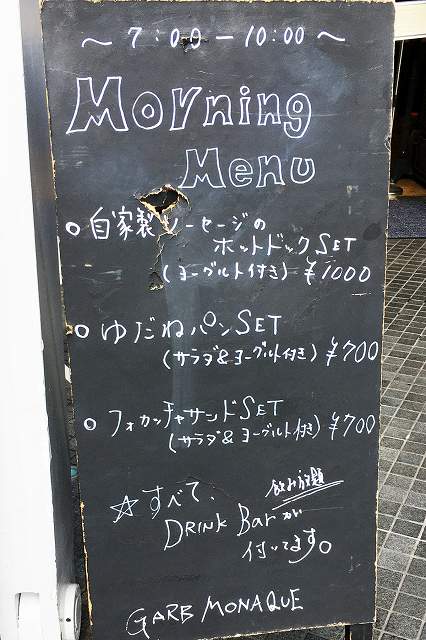 ～ 7:00 - 10:00 ～
Morning
Menu
○ 自家製ソーセージの
ホットドックSET
(ヨーグルト付き) ¥1000
○ ゆだねパンSET
(サラダ&ヨーグルト付き) ¥700
○ フォカッチャサンドSET
(サラダ&ヨーグルト付き) ¥700
☆すべて、
飲み放題
DRINK Barが
付いてます。
GARB MONAQUE